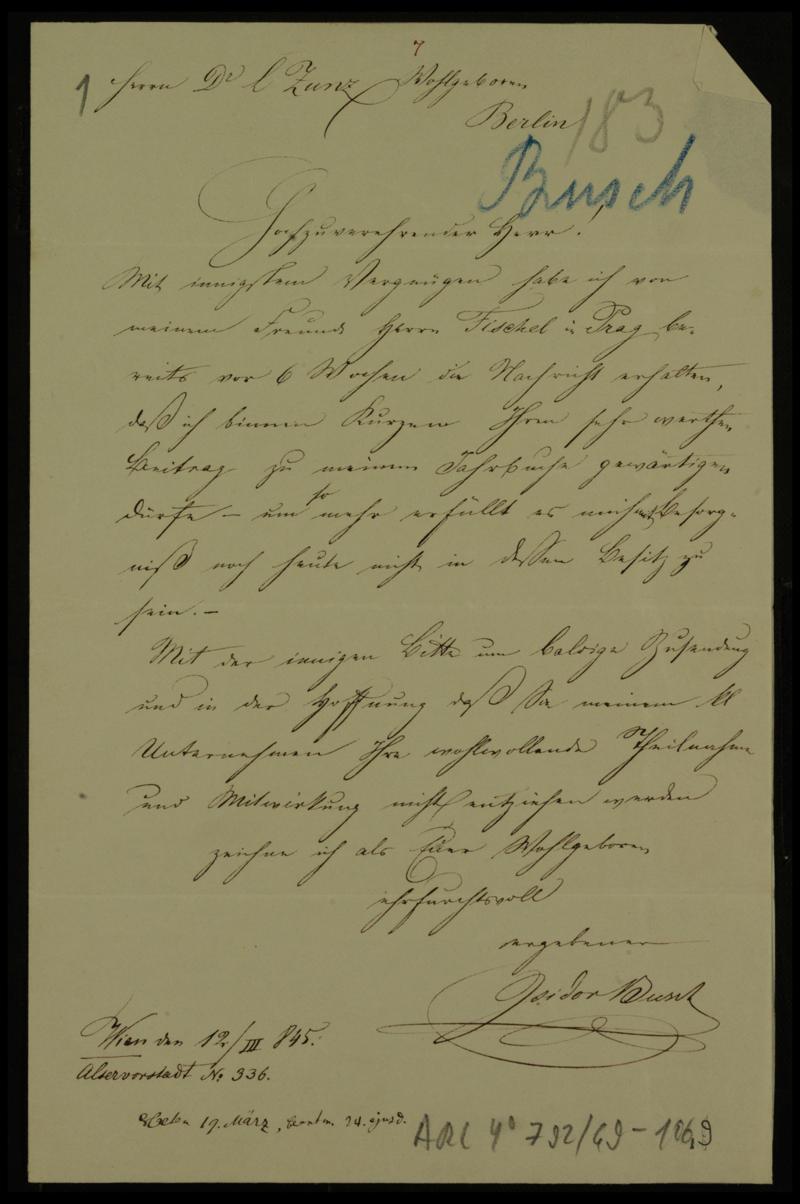 7
1 Herrn Dr L Zunz Wohlgeboren
Berlin
183
Busch
Hochzuverehrender Herr!
Mit innigstem Vergnügen habe ich von
meinem Freunde Herrn Fischel in Prag be-
reits vor 6 Wochen die Nachricht erhalten,
daß ich binnen Kurzem Ihren sehr werthen
Beitrag zu meinem Jahrbuche gewärtigen
dürfe – um so mehr erfüllt es mich mit Besorg-
niß noch heute nicht in dessen Besitz zu
sein. –
Mit der innigen Bitte um baldige Zusendung
und in der Hoffnung daß Sie meinem
Unternehmen Ihre wohlwollende Theilnahme
und Mitwirkung nicht entziehen werden
zeichne ich als Euer Wohlgeboren
ehrfurchtsvoll
ergebener
Isidor Busch
Wien den 12/III 845.
Alservorstadt No 336.
19. März, 24. ejusd.
ARC 4° 792/G9-